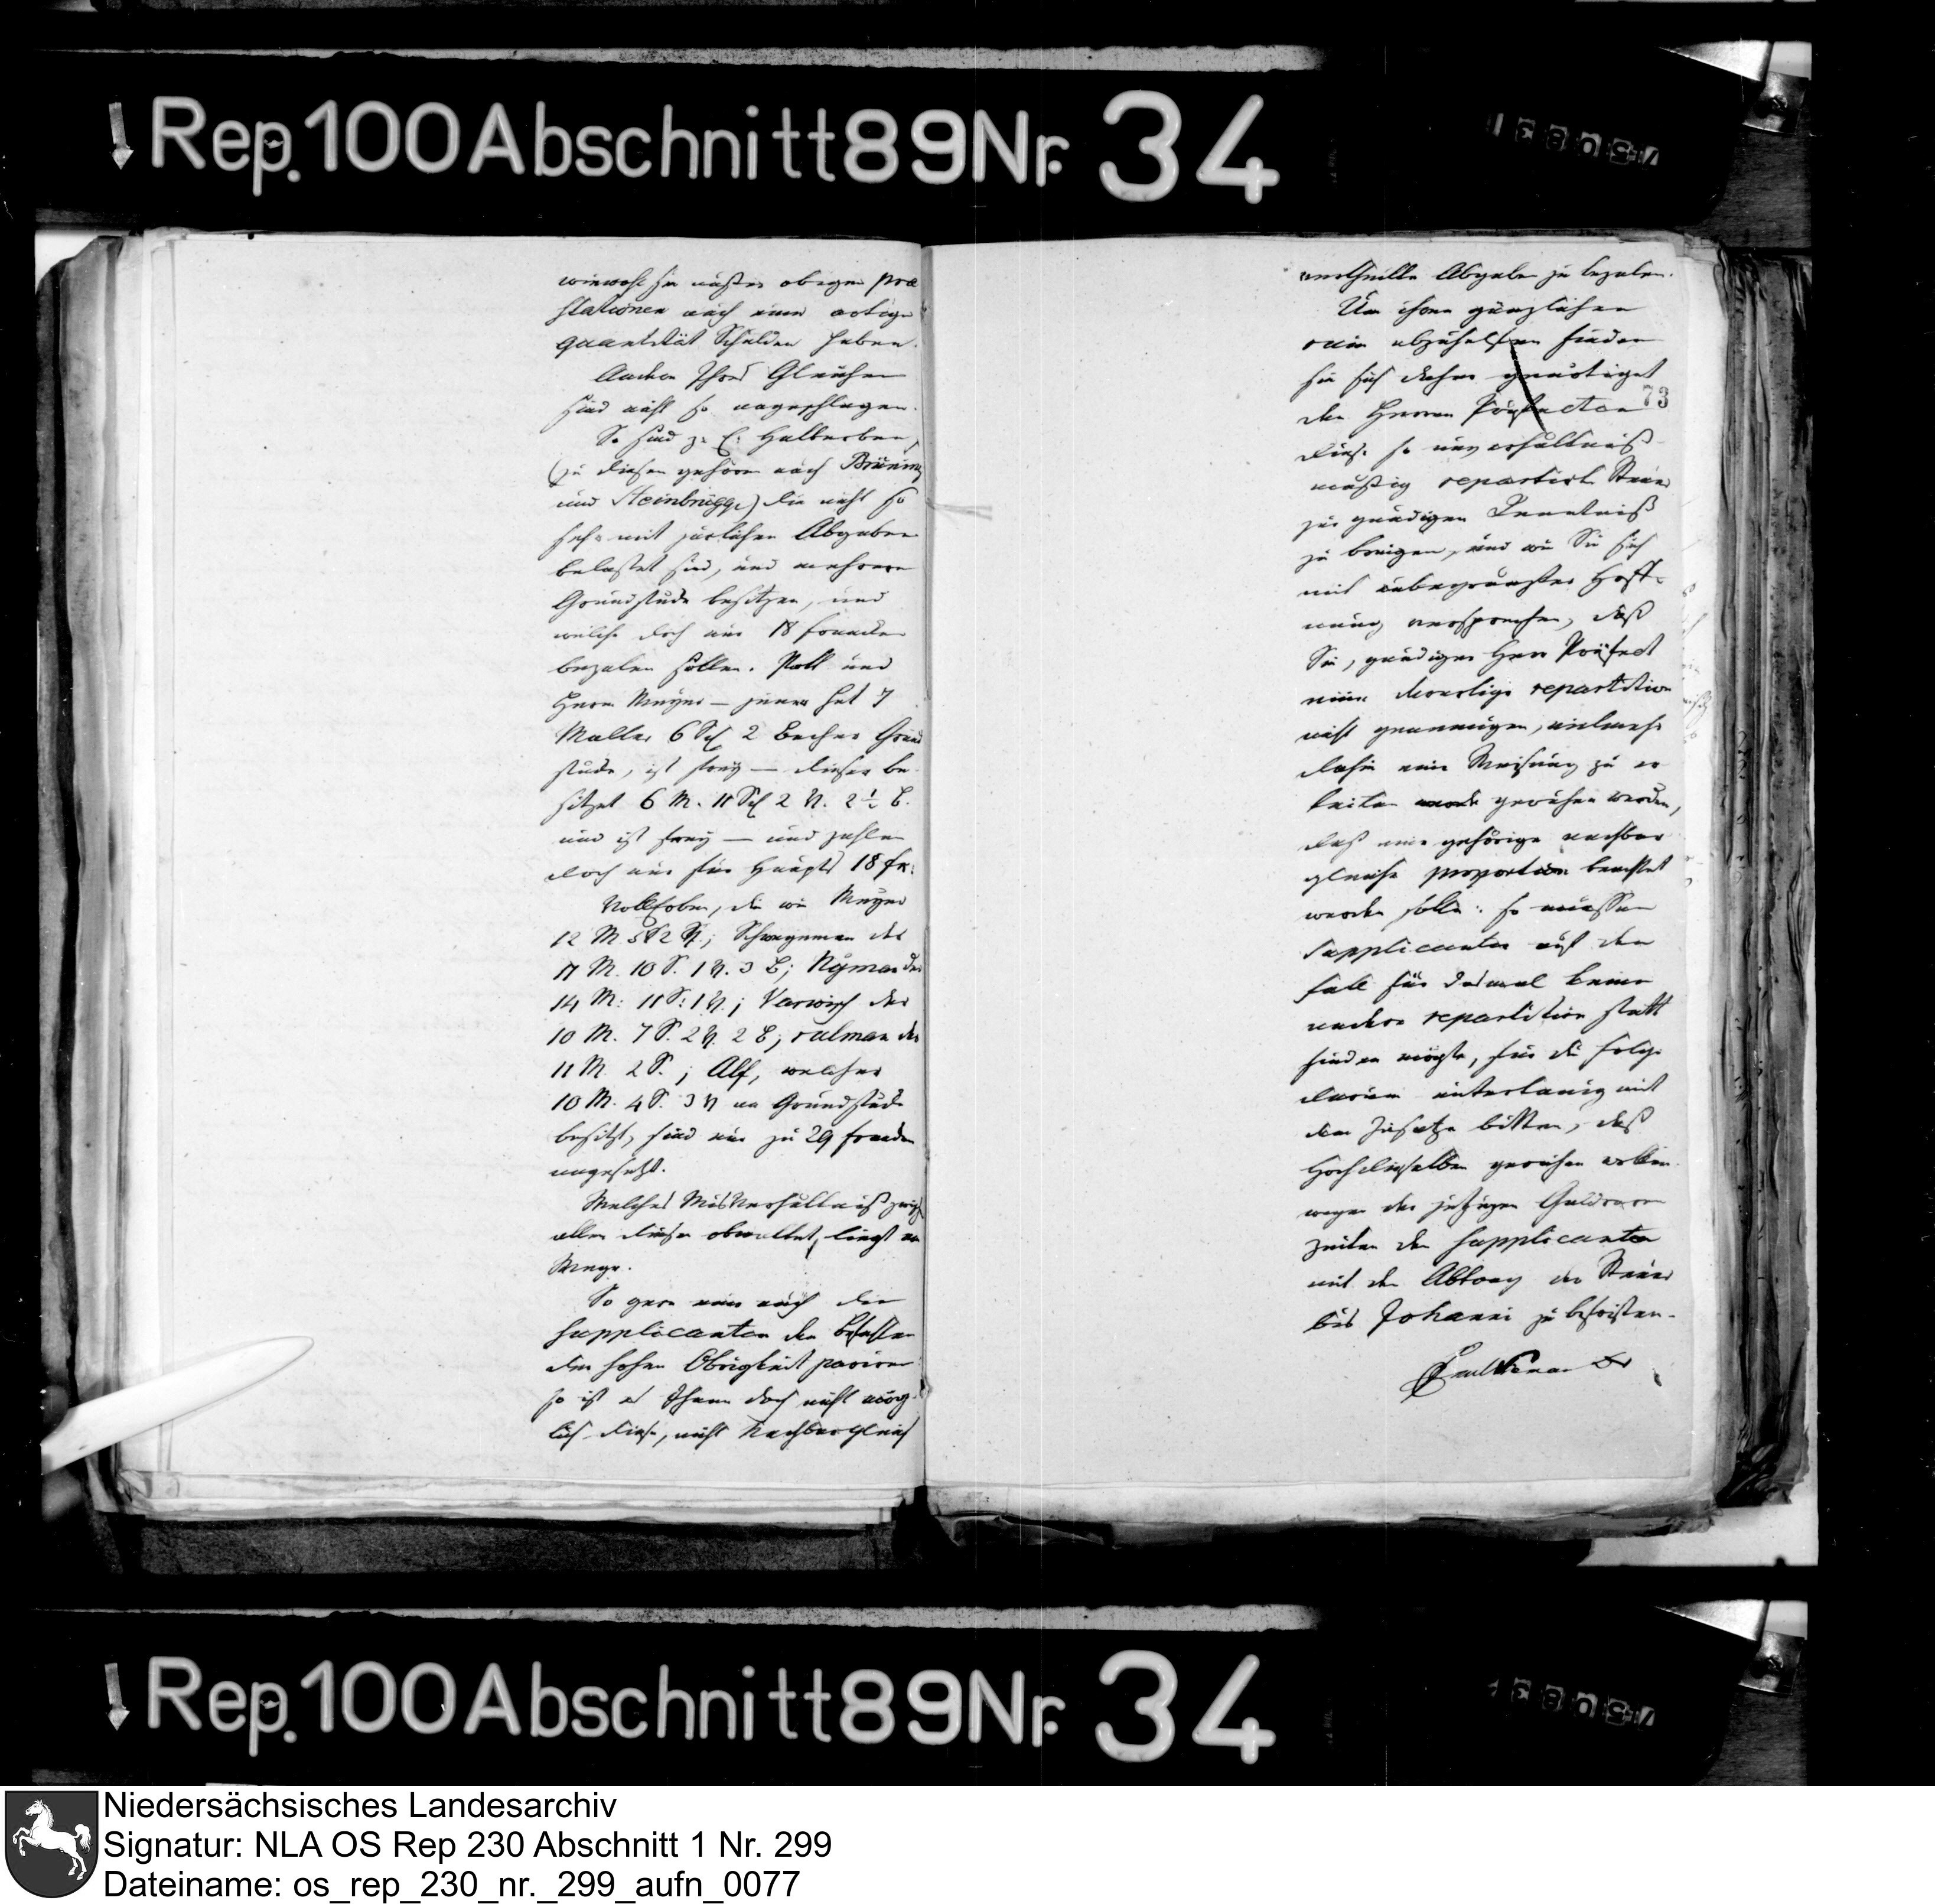 Rep. 100 Abschnitt 89 Nr. 34
wiewohl sie außer obigen prae
stationen auch eine artige
quantität Schulden haben.
Andere Ihres Gleichen
sind nicht so angeschlagen.
So sind z. E. Halberben,
(zu diesen gehören auch Brüning
und Steinbrügge) die nicht so
sehr mit järlichen Abgaben
belastet sind, und mehrere
Grundstücke besitzen, und
welche doch nur 18 francken
bezalen sollen. Pott und
Herm Meyer — jener hat 7
Malter 6 Sch 2 Becher Grund
stücke, ist frey — dieser be
sitzet 6 M. 11 Sch 2 V. 2½ B.
und ist frey — und zahlen
doch nur fürs Haupt 18 fr.
Vollerben, die wie Meyer
12 M 5 S 2 V.; Schwegman der
17 M. 10 S. 1 V. 3 B; Nyman der
14 M: 11 S: 1 V.; Varwisch der
10 M. 7 S. 2 V. 2 B; der
11 M. 2 S.; Alf, welcher
10 M. 4 S. 3 V an Grundstücke
besitzt, sind nur zu 29 francken
angesetzt.
Welches Misverhältniß zwisch
allen diesen obwaltet, liegt am
Wege.
So gern nun auch die
Supplicanten den Befehlen
der hohen Obrigkeit pariren
so ist es Ihnen doch nicht mög
lich diese, nicht Nachbargleich
vertheilte Abgaben zu bezalen.
Um ihren gänzlichen
ruin abzuhelfen finden
sie sich daher genötiget
den Herren Präfecten
73
diese so unverhältniß
mäßig repartirte Steuer
zur gnädigen Kenntniß
zu bringen, und wie Sie sich
mit unbegränzter Hoff-
nung versprechen, daß
Sie, gnädiger Herr Präfect
eine derartige repartition
nicht genemigen, vielmehr
dahin eine Weisung zu er
teilen geruhen werden,
daß eine gehörige nachbar
gleiche proportion beachtet
werden solle: so müssen
Supplicanten auf den
fall für dasmal keine
andere repartition statt
finden mögte, für die folge
darum unterthänig mit
dem Zusatze bitten, daß
Hochdieselben geruhen wollen
wegen der jetzigen Geldraren
Zeiten den Supplicanten
mit der Abtrag der Steuer
bis Johanni zu befristen.
Rep. 100 Abschnitt 89 Nr. 34
Niedersächsisches Landesarchiv
Signatur: NLA OS Rep 230 Abschnitt 1 Nr. 299
Dateiname: os_rep_230_nr._299_aufn_0077